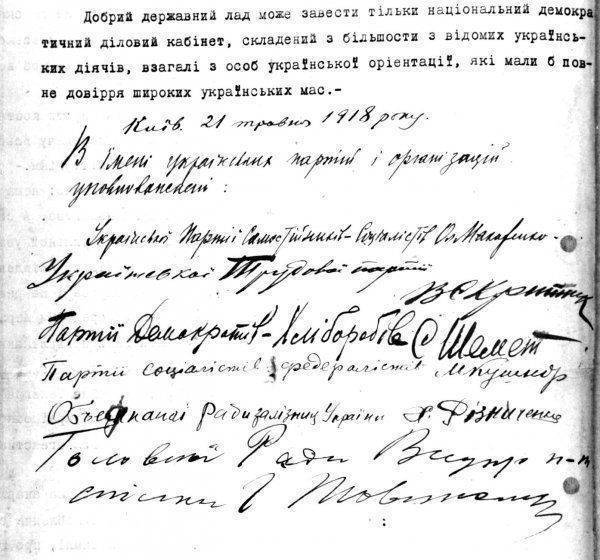 Добрий державний лад може завести тільки національний демокра
тичний діловий кабінет, складений з більшости з відомих українсь-
ких діячів, взагалі з особ української орієнтації, які мали б пов-
не довірря широких українських мас.-
Київ. 21 травня 1918 року.
В імені українських партій і організацій
уповноважені:
Української Партії Самостійників-Соціялістів Ол Макаренко-
Української Трудової партії
Партії Демократів-Хліборобів С Шемет
Партії соціялістів федералістів М Кушнір
Обʼєднаної Ради залізниць України Різниченко
Головної Ради